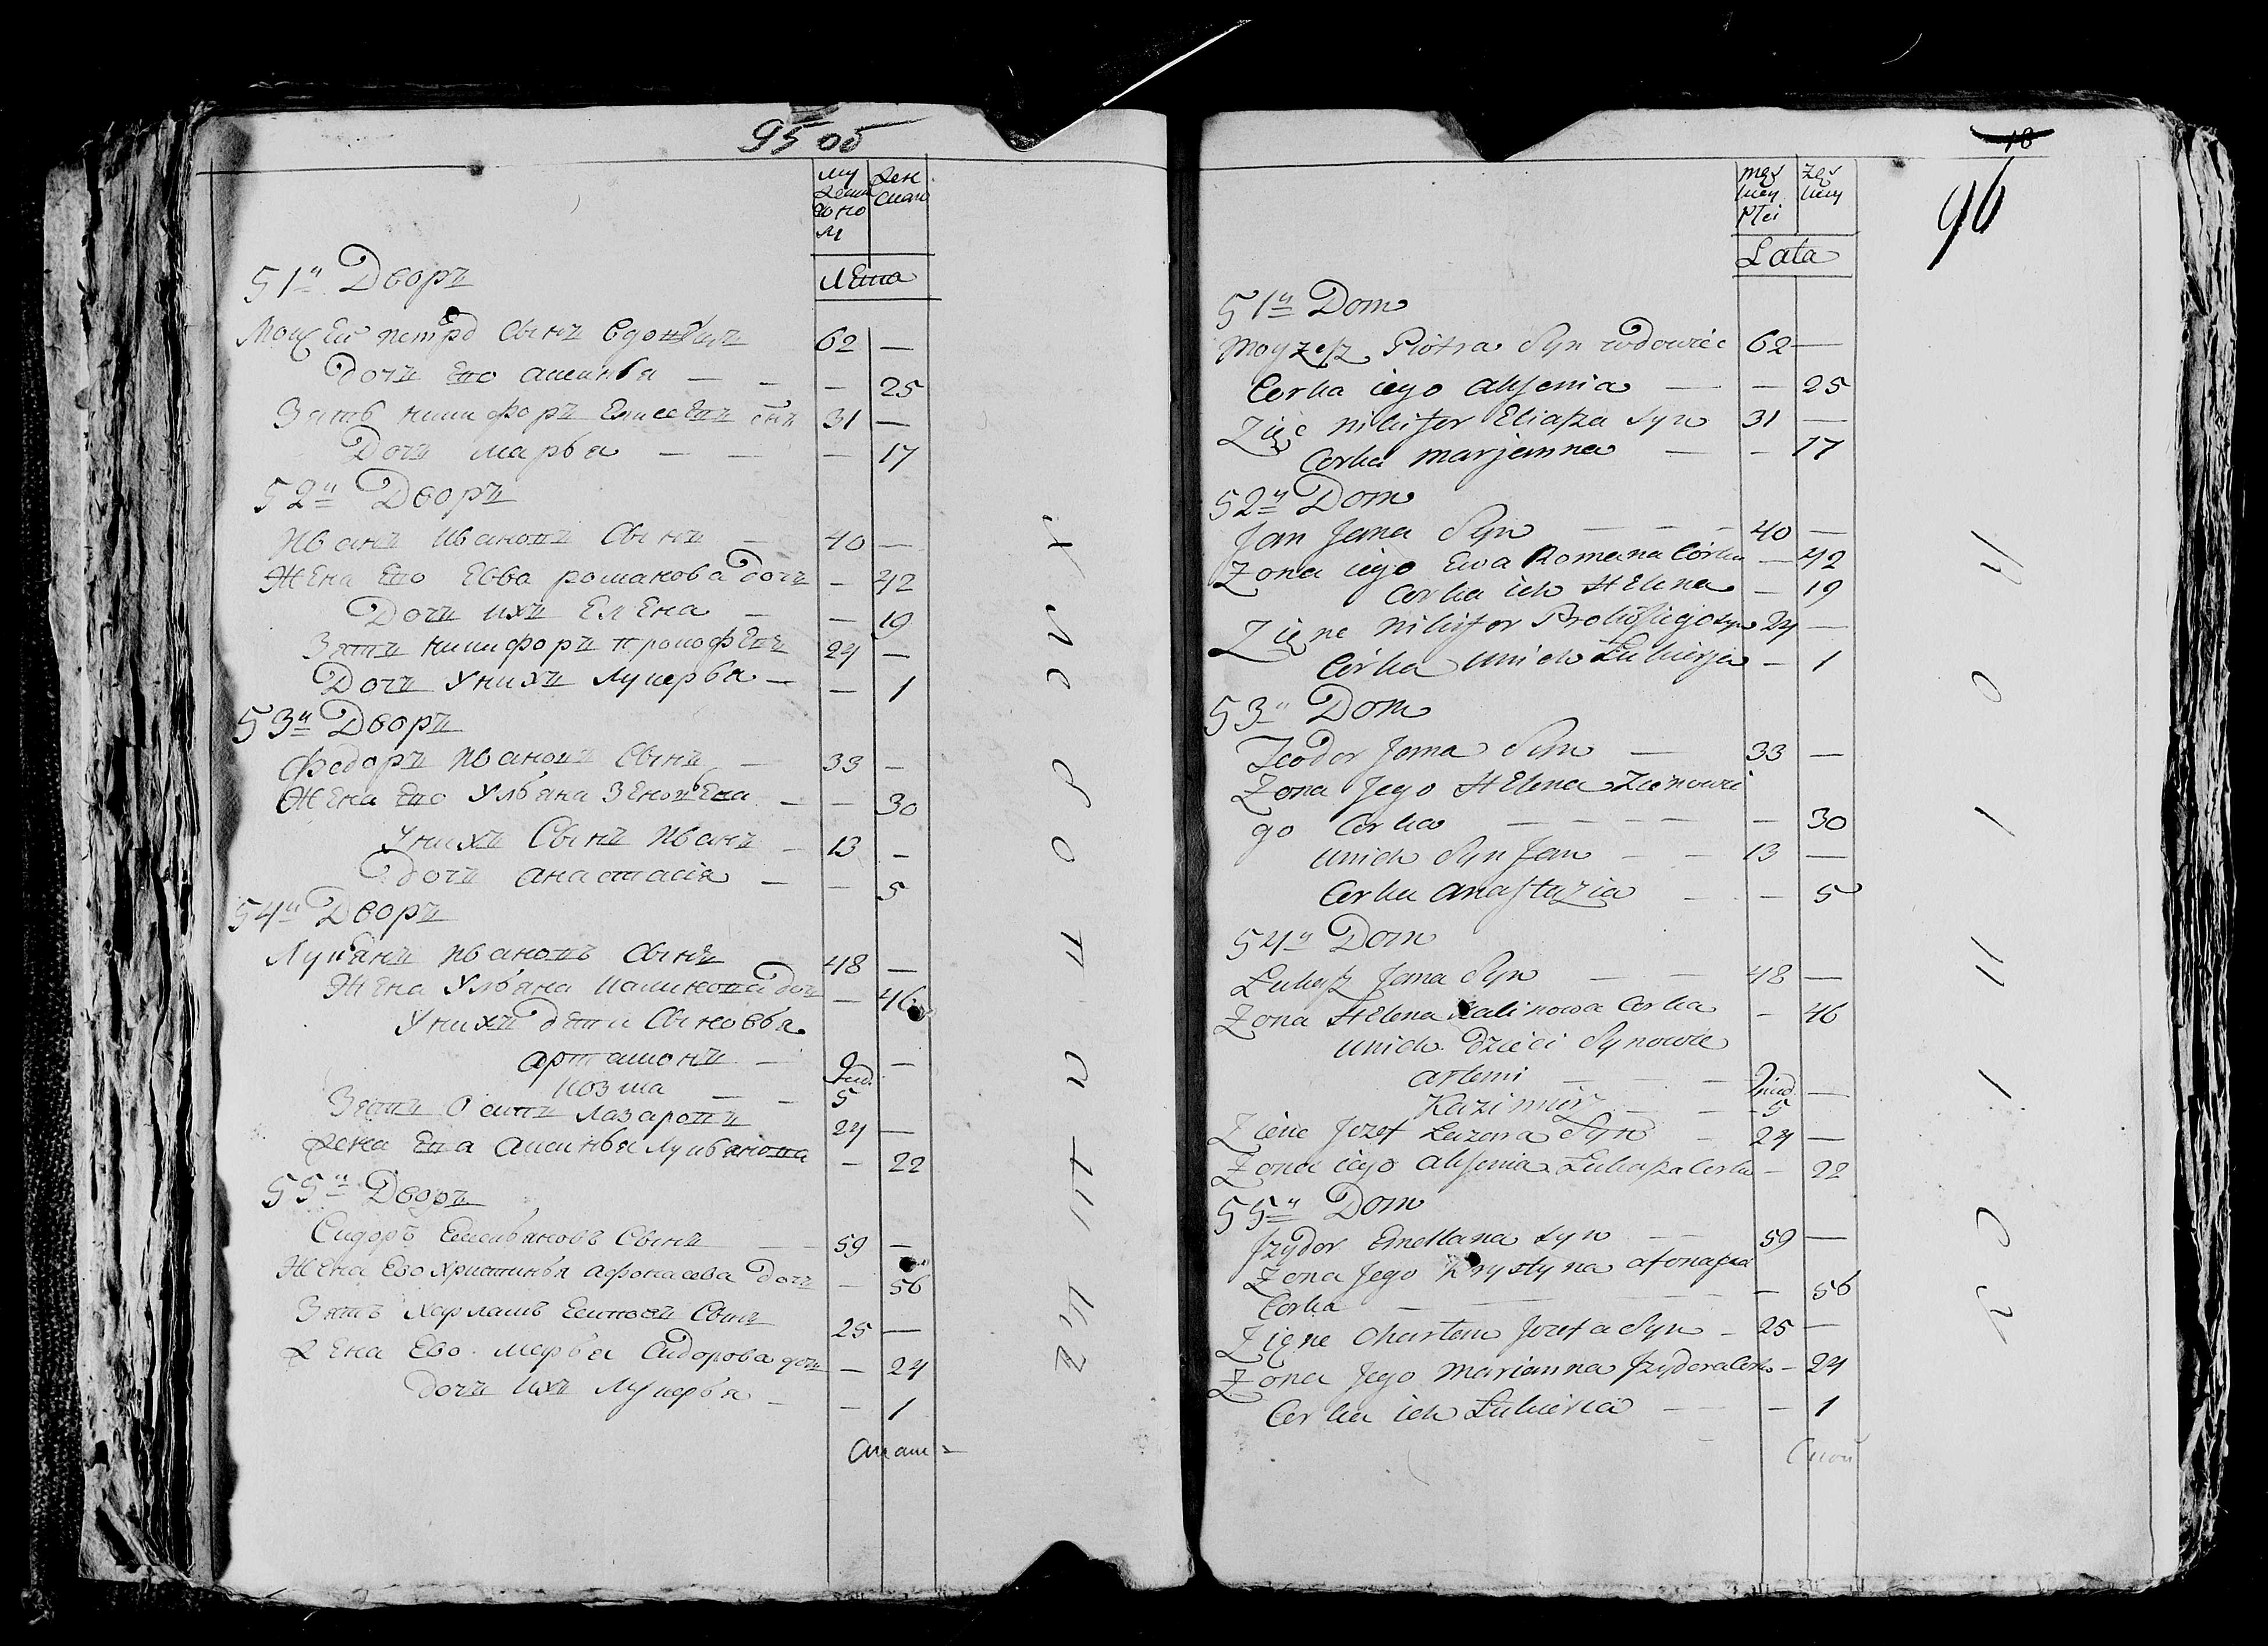 95 об
Му жеска во По ла
Жен скаго
Лѣта
51й Дворъ
Моисей петро Сынъ вдовецъ 62 —
дочь Его аксинья — — — 25
Зять никифоръ Елисеевъ снъ 31 —
Дочь марья — — — 17
52й Дворъ
Иванъ Ивановъ Сынъ — 40 —
Жена Его Евва романова дочь — 42
Дочь ихъ Елена — — 19
Зять никифоръ прокофьевъ 24 —
Дочь Унихъ Лукерья — — 1
53й Дворъ
Федоръ Ивановъ Сынъ — 33 —
Жена Его Ульяна — — 30
Унихъ Сынъ Иванъ — 13 —
дочь анастасія — — 5
54й Дворъ
Лукянъ Ивановъ Сынъ 48 —
Жена Ульяна калинова дочь — 46
Унихъ дети Сыновья
артамонъ — —
козма — — 5
Зять Осипъ Лазаровъ 24 —
жена Его аксинья Лукьянова — 22
55й Дворъ
Сидоръ Емельяновъ Сынъ — 59 —
Жена Ево христинья афонасева дочь — 56
Зять харлампъ Сынъ 25 —
Жена Ево марья Сидорова дочь — 24
дочь ихъ Лукерья — — 1
18
96
męs kiey płci
żeń skiey
Lata
51y Dom
Moyżesz Piotra Syn wdowiec 62 —
Corka iego Axenia — — 25
Zięć nikifor Eliasza Syn 31 —
Corka marjanna — — 17
52y Dom
Jan Jana Syn — — — 40 —
Żona iego Ewa Romana Córka — 42
Corka ich Helena — 19
Zięne nikifor Syn 24 —
Córka unich Łukierja — 1
53y Dom
Teodor Jana Syn — 33 —
Żona Jego Helena Zienowie
go Corka — — — — — 30
unich Syn Jan — — 13 —
Corka anastazia — — 5
54y Dom
Łukasz Jana Syn — — 48 —
Żona Helena Kalinowa Corka — 46
unich dzieci Synowie
artemi — — — —
Kazimierz — — 5
Zięne Jozef Lazora Syn — 24 —
Żona iego Axenia Łukasza Corka — 22
55y Dom
Jzydor Emeliana Syn — — 59 —
Żona Jego Krystyna afonasza
Corka — — — — — 56
Zięne Charlem Jozefa Syn — 25 —
Żona Jego Marianna Jzydora Corka — 24
Corka ich Łukieria — — — 1